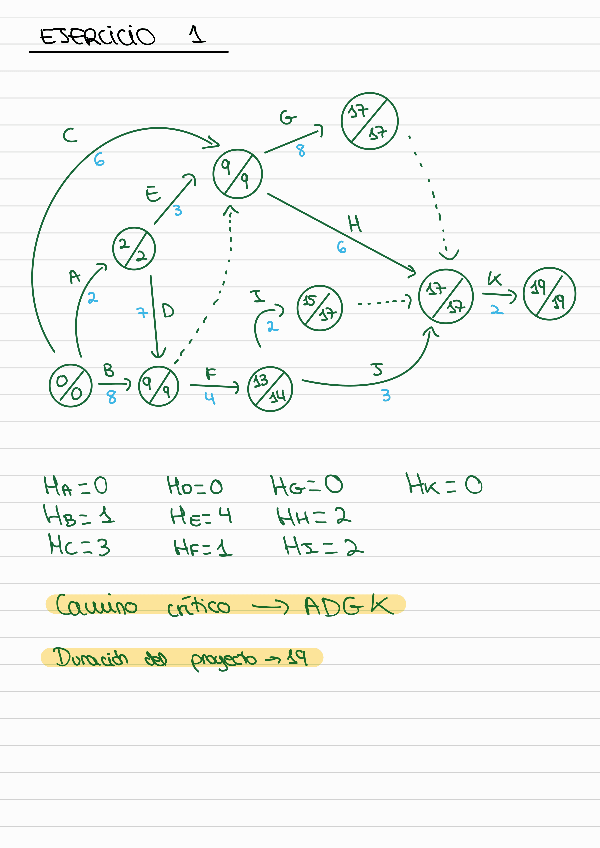 EJERCICIO 1
C
6
G
8
17
17
9
9
E
3
H
6
2
2
A
2
7
D
I
2
15
17
17
17
K
2
19
19
0
0
B
8
9
9
F
4
13
14
J
3
HA=0 HD=0 HG=0 HK=0
HB=1 HE=4 HH=2
HC=3 HF=1 HI=2
Camino crítico → ADGK
Duración del proyecto → 19